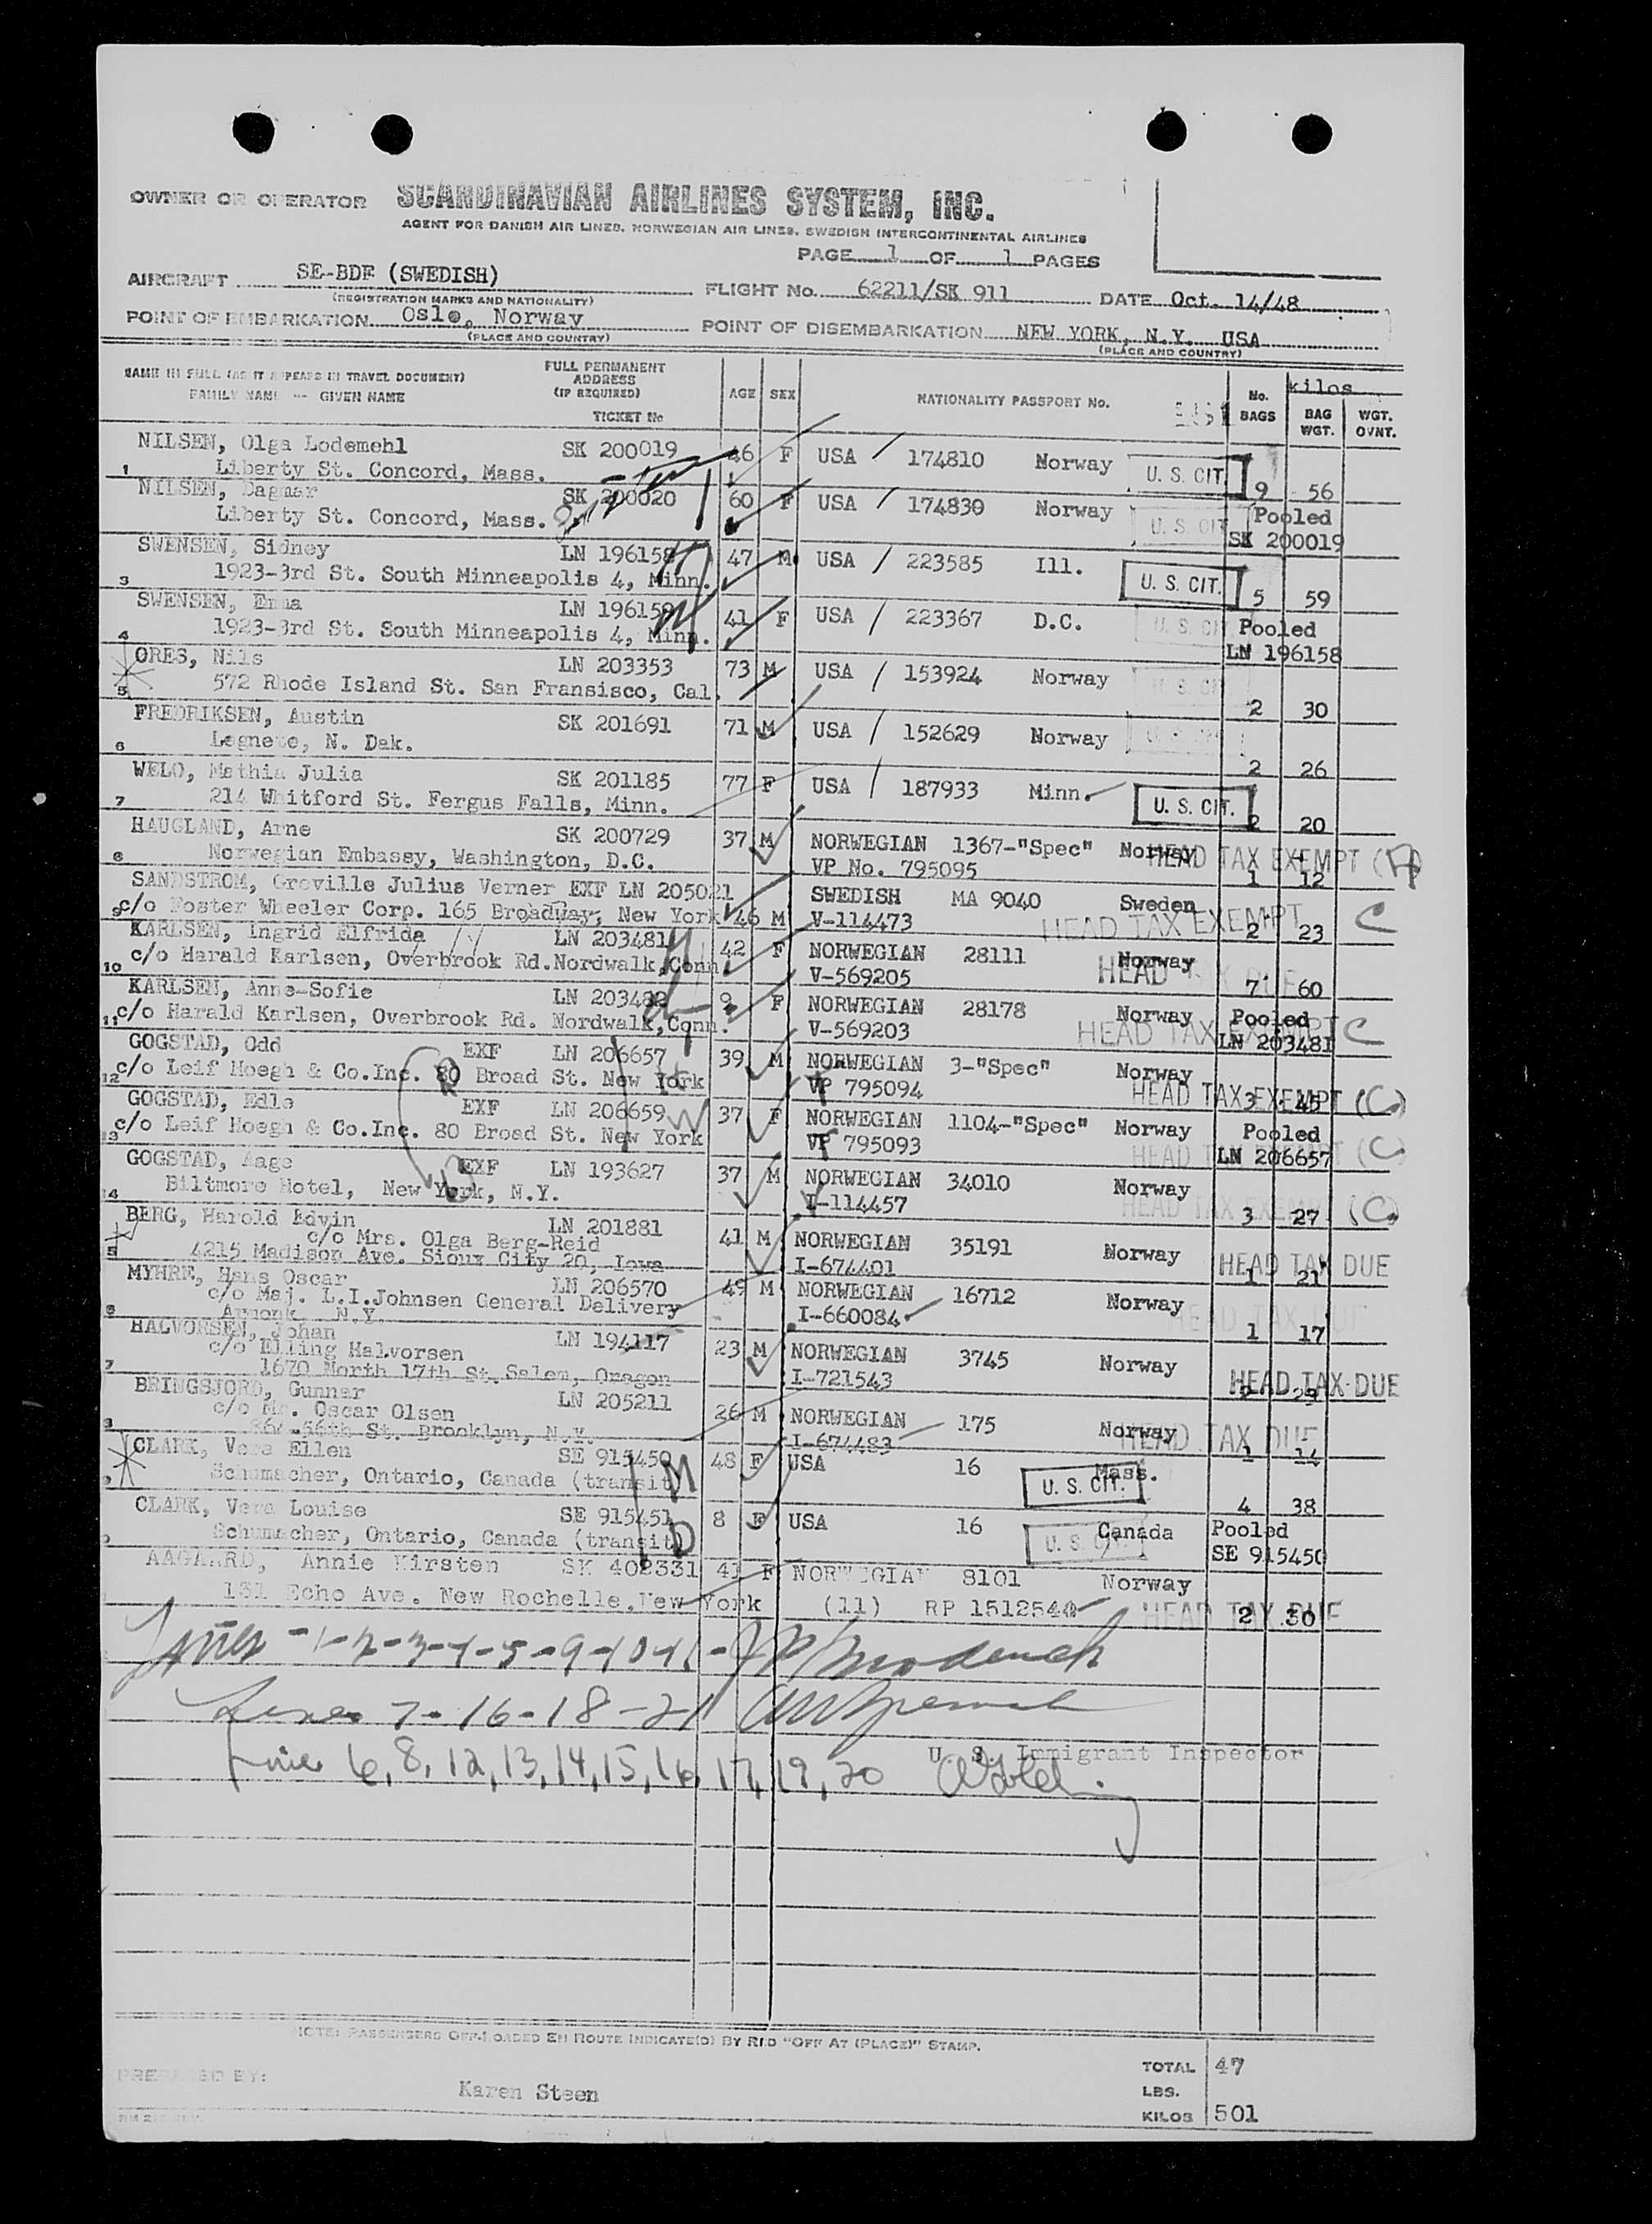 OWNER OR OPERATOR SCANDINAVIAN AIRLINES SYSTEM, INC.
AGENT FOR DANISH AIR LINES, NORWEGIAN AIR LINES, SWEDISH INTERCONTINENTAL AIRLINES
PAGE 1 OF 1 PAGES
AIRCRAFT SE-BDF (SWEDISH) FLIGHT No. 62211/SK 911 DATE Oct. 14/48
(REGISTRATION MARKS AND NATIONALITY)
POINT OF EMBARKATION Oslo, Norway POINT OF DISEMBARKATION NEW YORK, N.Y. USA
(PLACE AND COUNTRY) (PLACE AND COUNTRY)
NAME IN FULL (AS IT APPEARS IN TRAVEL DOCUMENT) FULL PERMANENT ADDRESS (IF REQUIRED) AGE SEX NATIONALITY PASSPORT No. No. BAGS kilos BAG WGT. WGT. OVNT.
FAMILY NAME -- GIVEN NAME TICKET No
NILSEN, Olga Lodemehl SK 200019 46 F USA / 174810 Norway U. S. CIT.
1 Liberty St. Concord, Mass. 9 56
NILSEN, Dagmar SK 200020 60 F USA / 174830 Norway U. S. CIT Pooled
Liberty St. Concord, Mass. SK 200019
SWENSEN, Sidney LN 196158 47 M USA / 223585 Ill. U. S. CIT.
3 1923-3rd St. South Minneapolis 4, Minn. 5 59
SWENSEN, Emma LN 196159 41 F USA / 223367 D.C. U. S. CI Pooled
4 1923-3rd St. South Minneapolis 4, Minn. LN 196158
ORES, Nils LN 203353 73 M USA / 153924 Norway U. S. CI
5 572 Rhode Island St. San Fransisco, Cal. 2 30
FREDRIKSEN, Austin SK 201691 71 M USA / 152629 Norway
6 Legnete, N. Dak. 2 26
WELO, Mathia Julia SK 201185 77 F USA / 187933 Minn. U. S. CIT.
7 214 Whitford St. Fergus Falls, Minn. 2 20
HAUGLAND, Arne SK 200729 37 M NORWEGIAN 1367-"Spec" Norway HEAD TAX EXEMPT
8 Norwegian Embassy, Washington, D.C. VP No. 795095 1 12
SANDSTROM, Groville Julius Verner EXF LN 205021 46 M SWEDISH MA 9040 Sweden HEAD TAX EXEMPT C
9 c/o Foster Wheeler Corp. 165 Broadway, New York V-114473 2 23
KARLSEN, Ingrid Elfrida LN 203481 42 F NORWEGIAN 28111 Norway HEAD TAX DUE
10 c/o Harald Karlsen, Overbrook Rd. Nordwalk, Conn. V-569205 7 60
KARLSEN, Anne-Sofie LN 203482 9 F NORWEGIAN 28178 Norway Pooled HEAD TAX EXEMPT C
11 c/o Harald Karlsen, Overbrook Rd. Nordwalk, Conn. V-569203 LN 203481
GOGSTAD, Odd EXF LN 206657 39 M NORWEGIAN 3-"Spec" Norway HEAD TAX EXEMPT (C)
12 c/o Leif Hoegh & Co.Inc. 80 Broad St. New York VP 795094 3 45
GOGSTAD, Edle EXF LN 206659 37 F NORWEGIAN 1104-"Spec" Norway Pooled (C)
13 c/o Leif Hoegh & Co.Inc. 80 Broad St. New York VP 795093 LN 206657
GOGSTAD, Aage EXF LN 193627 37 M NORWEGIAN 34010 Norway HEAD TAX EXEMPT (C)
14 Biltmore Hotel, New York, N.Y. I-114457 3 27
BERG, Harold Edvin LN 201881 41 M NORWEGIAN 35191 Norway HEAD TAX DUE
c/o Mrs. Olga Berg-Reid
5 4215 Madison Ave. Sioux City 20, Iowa I-674401 1 21
MYHRE, Hans Oscar LN 206570 49 M NORWEGIAN 16712 Norway HEAD TAX DUE
c/o Maj. L.I.Johnsen General Delivery I-660084
6 Armonk N.Y. 1 17
HALVORSEN, Johan LN 194117 23 M NORWEGIAN 3745 Norway HEAD TAX DUE
c/o Elling Halvorsen
7 1670 North 17th St. Salem, Oregon I-721543 2 29
BRINGSJORD, Gunnar LN 205211 26 M NORWEGIAN 175 Norway HEAD TAX DUE
c/o Mr. Oscar Olsen
864-56th St. Brooklyn, N.Y. I-674483 1 14
CLARK, Vera Ellen SE 915450 48 F USA 16 Mass. U. S. CIT.
Schumacher, Ontario, Canada (transit) 4 38
CLARK, Vera Louise SE 915451 8 F USA 16 Canada Pooled
Schumacher, Ontario, Canada (transit) SE 915450
AAGAARD, Annie Kirsten SK 402331 41 F NORWEGIAN 8101 Norway
131 Echo Ave. New Rochelle, New York (11) RP 1512540 HEAD TAX DUE 2 30
Lines -1-2-3-4-5-9-10-11-
Lines 7-16-18-21
U. S. Immigrant Inspector
Line 6, 8, 12, 13, 14, 15, 16, 17, 19, 20
NOTE: PASSENGERS OFF-LOADED EN ROUTE INDICATE(D) BY RED "OFF AT (PLACE)" STAMP.
PREPARED BY: Karen Steen
TOTAL 47
LBS.
KILOS 501